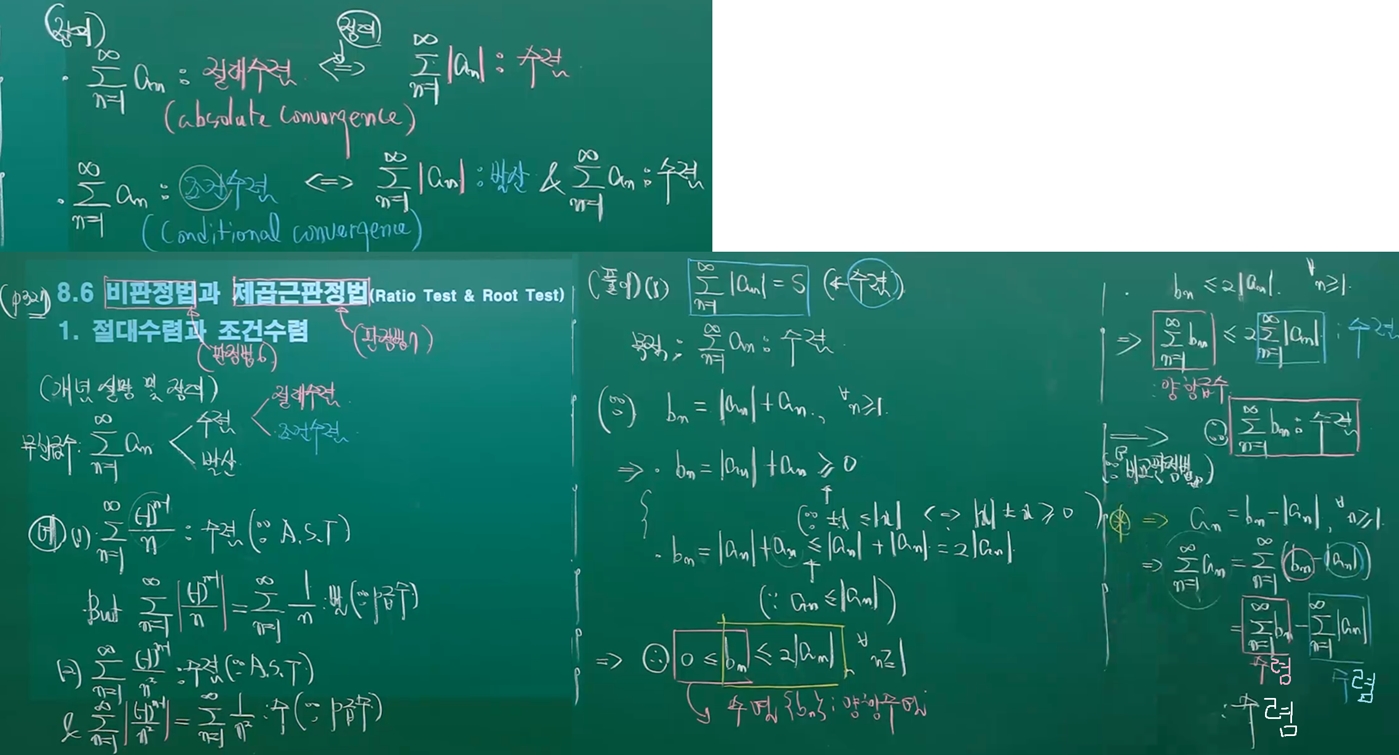 (정의) 정의
· ∞∑n=1 aₙ : 절대수렴 <=> ∞∑n=1 |aₙ| : 수렴
(absolute convergence)
· ∞∑n=1 aₙ : 조건수렴 <=> ∞∑n=1 |aₙ| : 발산 & ∞∑n=1 aₙ : 수렴
(Conditional convergence)
(p327) 8.6 비판정법과 제곱근판정법(Ratio Test & Root Test)
1. 절대수렴과 조건수렴
(판정법6) (판정법7)
(개념 설명 및 정의)
무한급수. ∞∑n=1 aₙ < 수렴 < 절대수렴
조건수렴
발산
예 (1) ∞∑n=1 (-1)ⁿ⁻¹/n : 수렴 (∵ A.S.T)
But ∞∑n=1 |(-1)ⁿ⁻¹/n| = ∞∑n=1 1/n : 발 (∵ p급수)
(2) ∞∑n=1 (-1)ⁿ⁻¹/n² : 수렴 (∵ A.S.T)
& ∞∑n=1 |(-1)ⁿ⁻¹/n²| = ∞∑n=1 1/n² : 수 (∵ p급수)
(풀이) (1) ∞∑n=1 |aₙ| = S (← 수렴)
목적; ∞∑n=1 aₙ : 수렴
(∵) bₙ = |aₙ| + aₙ, ∀n≥1.
=> · bₙ = |aₙ| + aₙ ≥ 0
(∵ ±x ≤ |x| <=> |x| ± x ≥ 0)
· bₙ = |aₙ| + aₙ ≤ |aₙ| + |aₙ| = 2|aₙ|
(∵ aₙ ≤ |aₙ|)
=> ∴ 0 ≤ bₙ ≤ 2|aₙ|, ∀n≥1
수열 {bₙ} : 양항수열
· bₙ ≤ 2|aₙ|. ∀n≥1.
=> ∞∑n=1 bₙ ≤ 2 ∞∑n=1 |aₙ| : 수렴
: 양항급수
=> ∴ ∞∑n=1 bₙ : 수렴
(∵ 비교판정법)
* => aₙ = bₙ - |aₙ|, ∀n≥1.
=> ∞∑n=1 aₙ = ∞∑n=1 (bₙ - |aₙ|)
= ∞∑n=1 bₙ - ∞∑n=1 |aₙ|
수렴 수렴
: 수렴